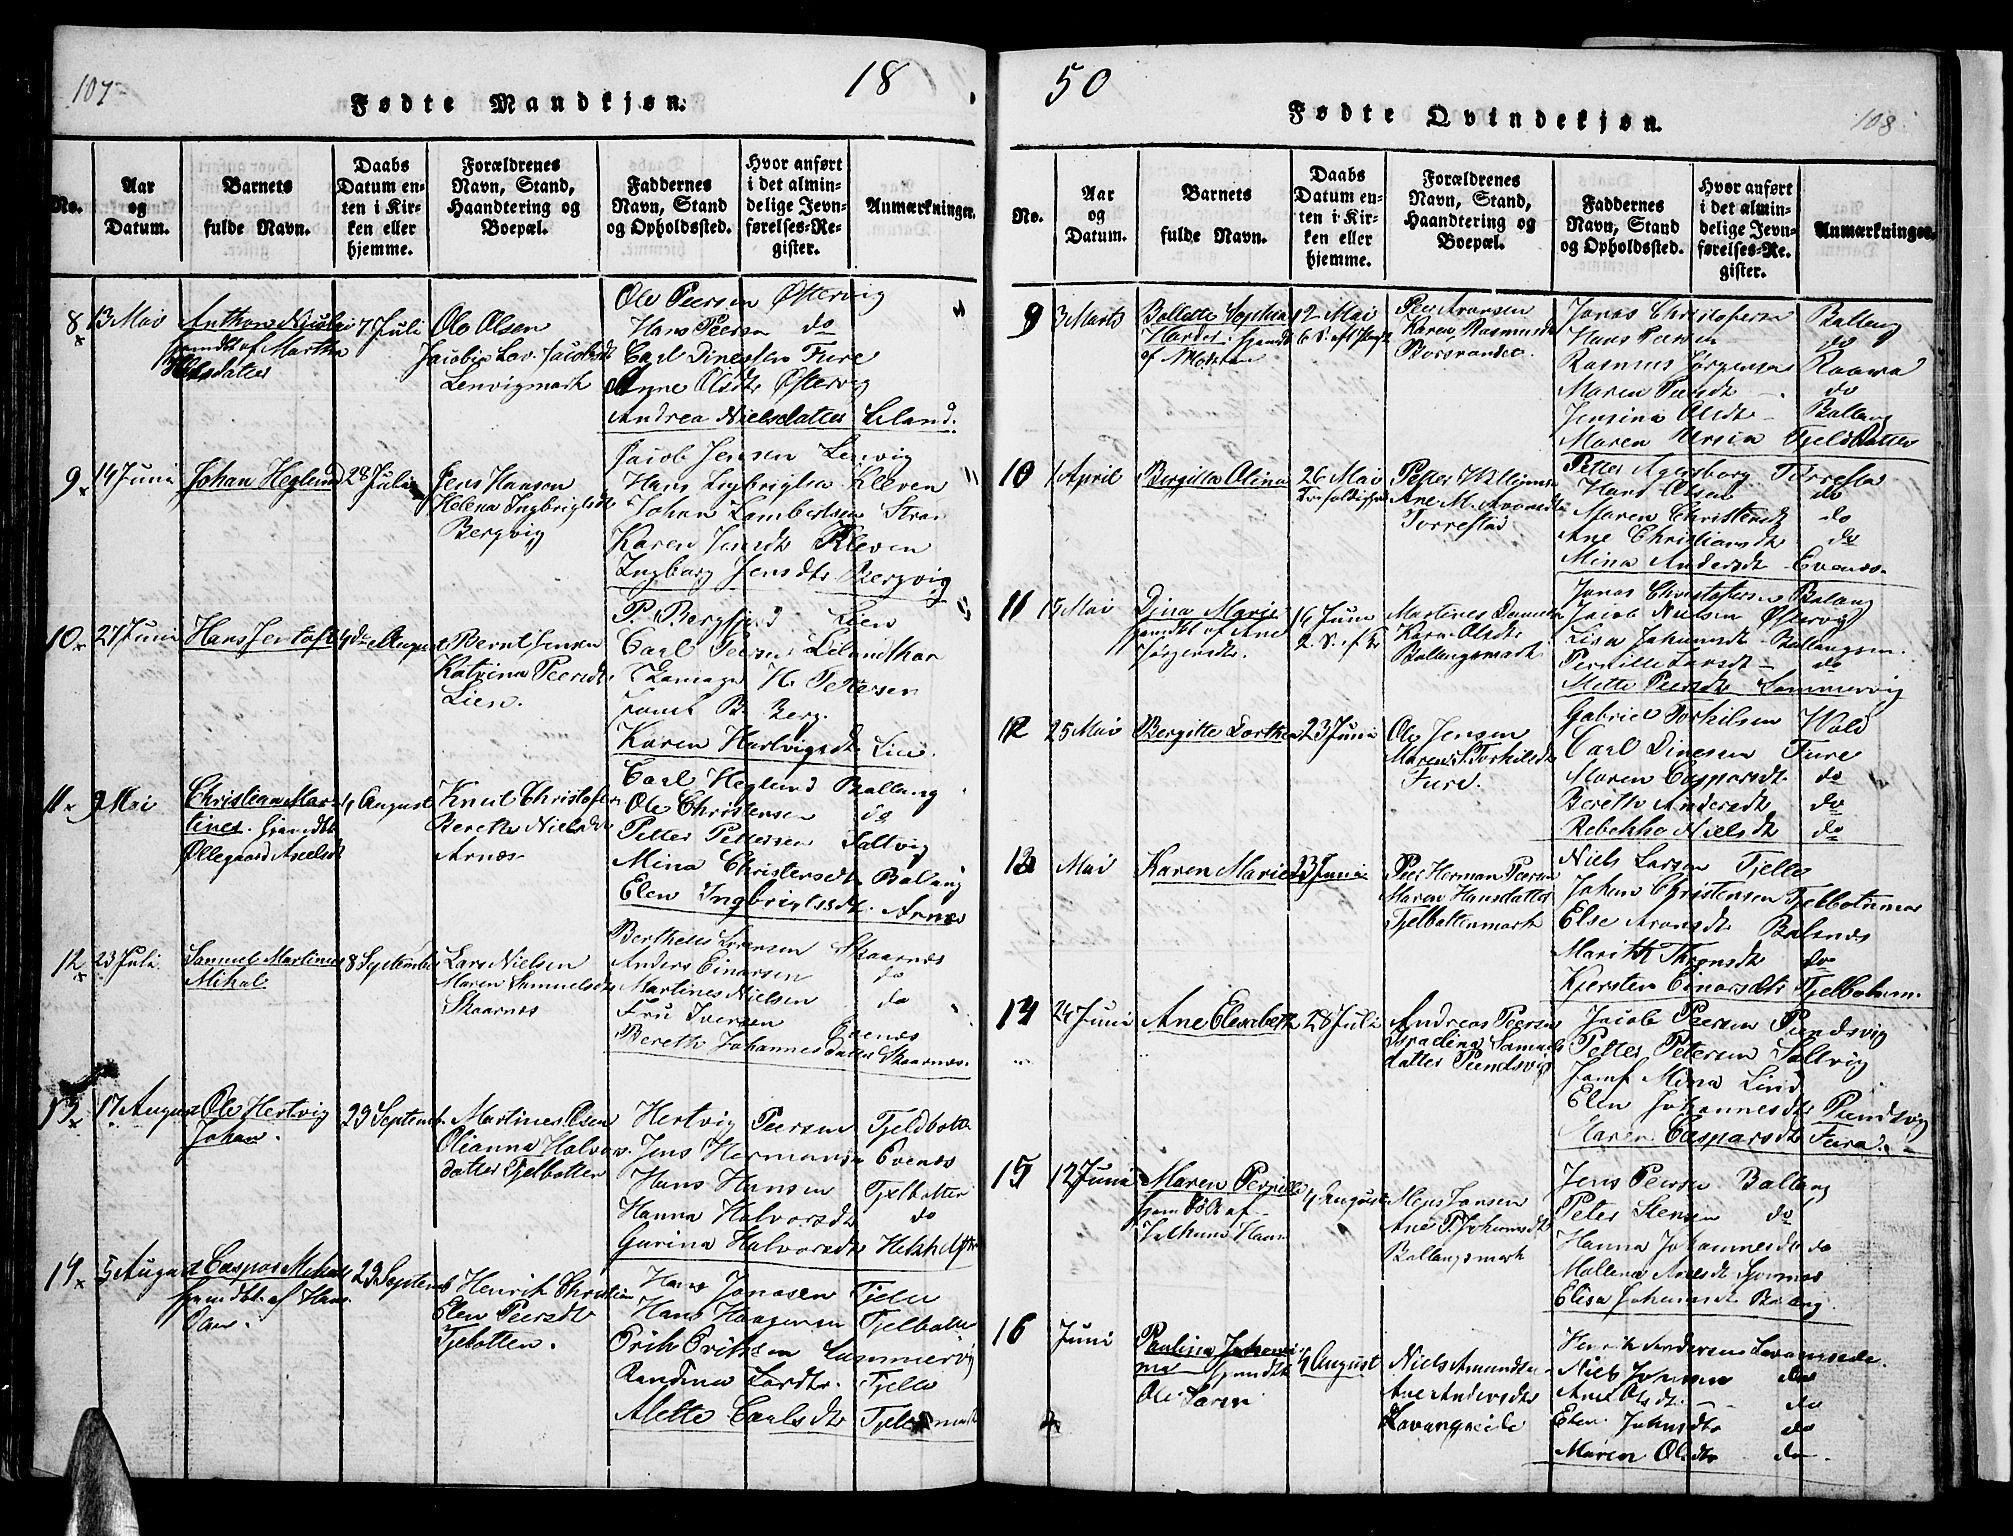 107
18
Fødte Mandkjøn.
No.
Aar
og
Datum.
Barnets
fulde Navn.
Daabs
Datum en-
ten i Kir-
ken eller
hjemme.
Forældrenes
Navn, Stand,
Haandtering og
Boepæl.
Faddernes
Navn, Stand
og Opholdssted.
Hvor anført
i det almin-
delige Jevn-
førelses-Re-
gister.
Anmærkninger.
8
13 Mai
Anthon
hjemdbt af Martha
7 Juli
Ole Olsen
Lenvigmark
Ole Peersen Østervig
Hans Peersen do
Carl Dinesen Fure
Anne Olsdtr Østervig
Andrea Nielsdatter Leland.
9
14 Juni
Johan Heglund
28 Juli
Jens Hansen
Helena Ingbrigtsdt
Bergvig
Jacob Jensen Lenvig
Hans Ingbrigtsen Kleven
Johan Lambertsen
Karen Jensdtr Kleven
Ingborg Jensdtr Bergvig
10
27 Juni
Hans Jentoft
4de August
Bernt Jensen
Katrina Peersdt
Lien.
Lien
Carl Peersen
Karen Hartvigsdt Lien.
11
9 Mai
Christian Mar-
tines. hjemdbt
Øllegaard Axelsdt
4 August
Knut Christofer
Bereth Nielsdt
Arnæs
Carl Heglund Ballang
Ole Christensen do
Petter Pettersen Saltvig
Mina Christensdt Ballang
Elen Ingbrigtsdt. Arnæs
12
23 Juli
Samuel Martinus
Mikal
8 September
Lars Nielsen
Maren Samuelsdt
Skaarnæs
Berthel Sørensen Skaarnæs
Anders Einarsen do
Martines Nielsen do
Fru Iversen Evenæs
Bereth Johannesdatter Skaarnæs.
13
17 August
Ole Hertvig
Johan.
29 Septemb.
Martines Olsen
Olianna Halvors-
datter Tjelbotten
Hertvig Peersen Tjeldbotten
Jens Hermansen Evenæs
Hans Hansen Tjelbotten
Hanna Halvorsdt do
Gurina Halvorsdtr
14
5 August
Caspar Mikal
hjemdbt af Hans
29 Septemb
Henrik Christian
Elen Peersdt
Tjelotten.
Hans Jonasen Tjelle
Hans Haagensen Tjelbotten
Erik Eriksen Sammervig
Randina Larsdtr. Tjelle
Alette Carlsdtr
50
Fødte Qvindekjøn.
108
No.
Aar
og
Datum.
Barnets
fulde Navn.
Daabs
Datum en-
ten i Kir-
ken eller
hjemme.
Forældrenes
Navn, Stand,
Haandtering og
Boepæl.
Faddernes
Navn, Stand
og Opholdssted.
Hvor anført
i det almin-
delige Jevn-
førelses-Re-
gister.
Anmærkninger.
9
3 Marts
Bollette Sophia
12 Mai
Peer Aronsen
Karen Rasmusdt
Jonas Christofersen Ballang
Hans Peersen do
Rasmus Jørgensen
Maren do
Jensina Olsdt Ballang
Maren Ursin Tjeldbotten
10
1 April
Bergitta Olina
26 Mai
Petter Willumsen
Torrestad
Petter Agersborg Torrestad
Hans Olsen do
Maren Christensdt do
Ane Christiansdt do
Mina Andersdt Evenæs.
11
15 Mai
Marie
hjemdbt af Ane
Jørgensdtr.
16 Juni
Martines
Karen Olsdtr
Ballangsmark
Jonas Christofersen Ballang
Jacob Nielsen Østervig
Lisa Johansdt Ballangsm.
Pernille Larsdt do
Mette Peersdt Sammervig
12
25 Mai
Bergitte Dorthea
23 Juni
Ole Jensen
Maren Torkilsdt
Fure.
Gabriel Torkilsen Vold
Carl Dinesen Fure
Maren Casparsdt do
Bereth Andersdt do
Rebekka Nielsdt do
13
Mai
Karen Marie
23 Juni
Peer Herman Peersen
Maren Hansdatter
Tjelbottenmark
Niels Larsen Tjelle
Johan Christensen
Else Aronsdt Balsnæs
Marith Thronsdt do
Kjersten Einarsdtr
14
24 Juni
Ane Elisabeth
28 Juli
Andreas Peersen
Samuels
datter Pundsvig
Jacob Peersen Pundsvig
Petter Petersen Saltvig
Jomf Mina Lind
Elen Johannesdtr Pundsvig
Maren Casparsdt Fura.
15
12 Juni
Maren Pernille
hjemdbt af
4 August
Mons Larsen
Ane Johansdt
Ballangsmark
Jens Peersen Ballang
Peter Stensen do
Hanna Johannesdt do
Mollena Axelsdt
Elisa Johansdt Ballang.
16
Juni
Paulina
hjemdbt
Ole Larsen
4 August
Niels Amundsen
Ane Andersdtr
Lavangseide
Henrik Andersen Lavangseide.
Niels Johnsen do
Ane Olsdt. do
Elen Johnsdtr do
Maren Olsdtr do.